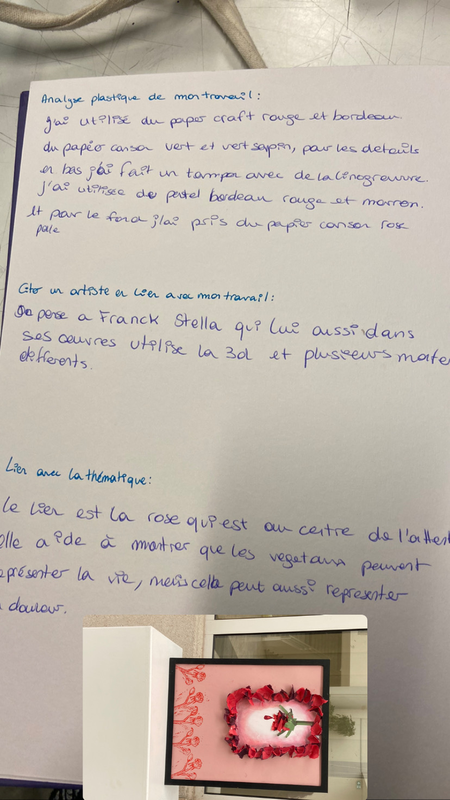 Analyse plastique de mon travail :
j'ai utilisé du papier craft rouge et bordeau
du papier canson vert et vert sapin, pour les details
en bas j'ai fait un tampon avec de la linogravure.
J'ai utilisée de pastel bordeau rouge et marron.
Et par le fond j'ai pris du papier canson rose
pale
Citer un artiste en lien avec mon travail :
On pense a Franck Stella qui lui aussi dans
ses œuvres utilise la 3d et plusieurs mate
differents.
Lien avec la thématique :
le lien est la rose qui est au centre de l'atten
elle aide à montrer que les vegetaux peuvent
eprésenter la vie, mais cela peut aussi representer
douleur.